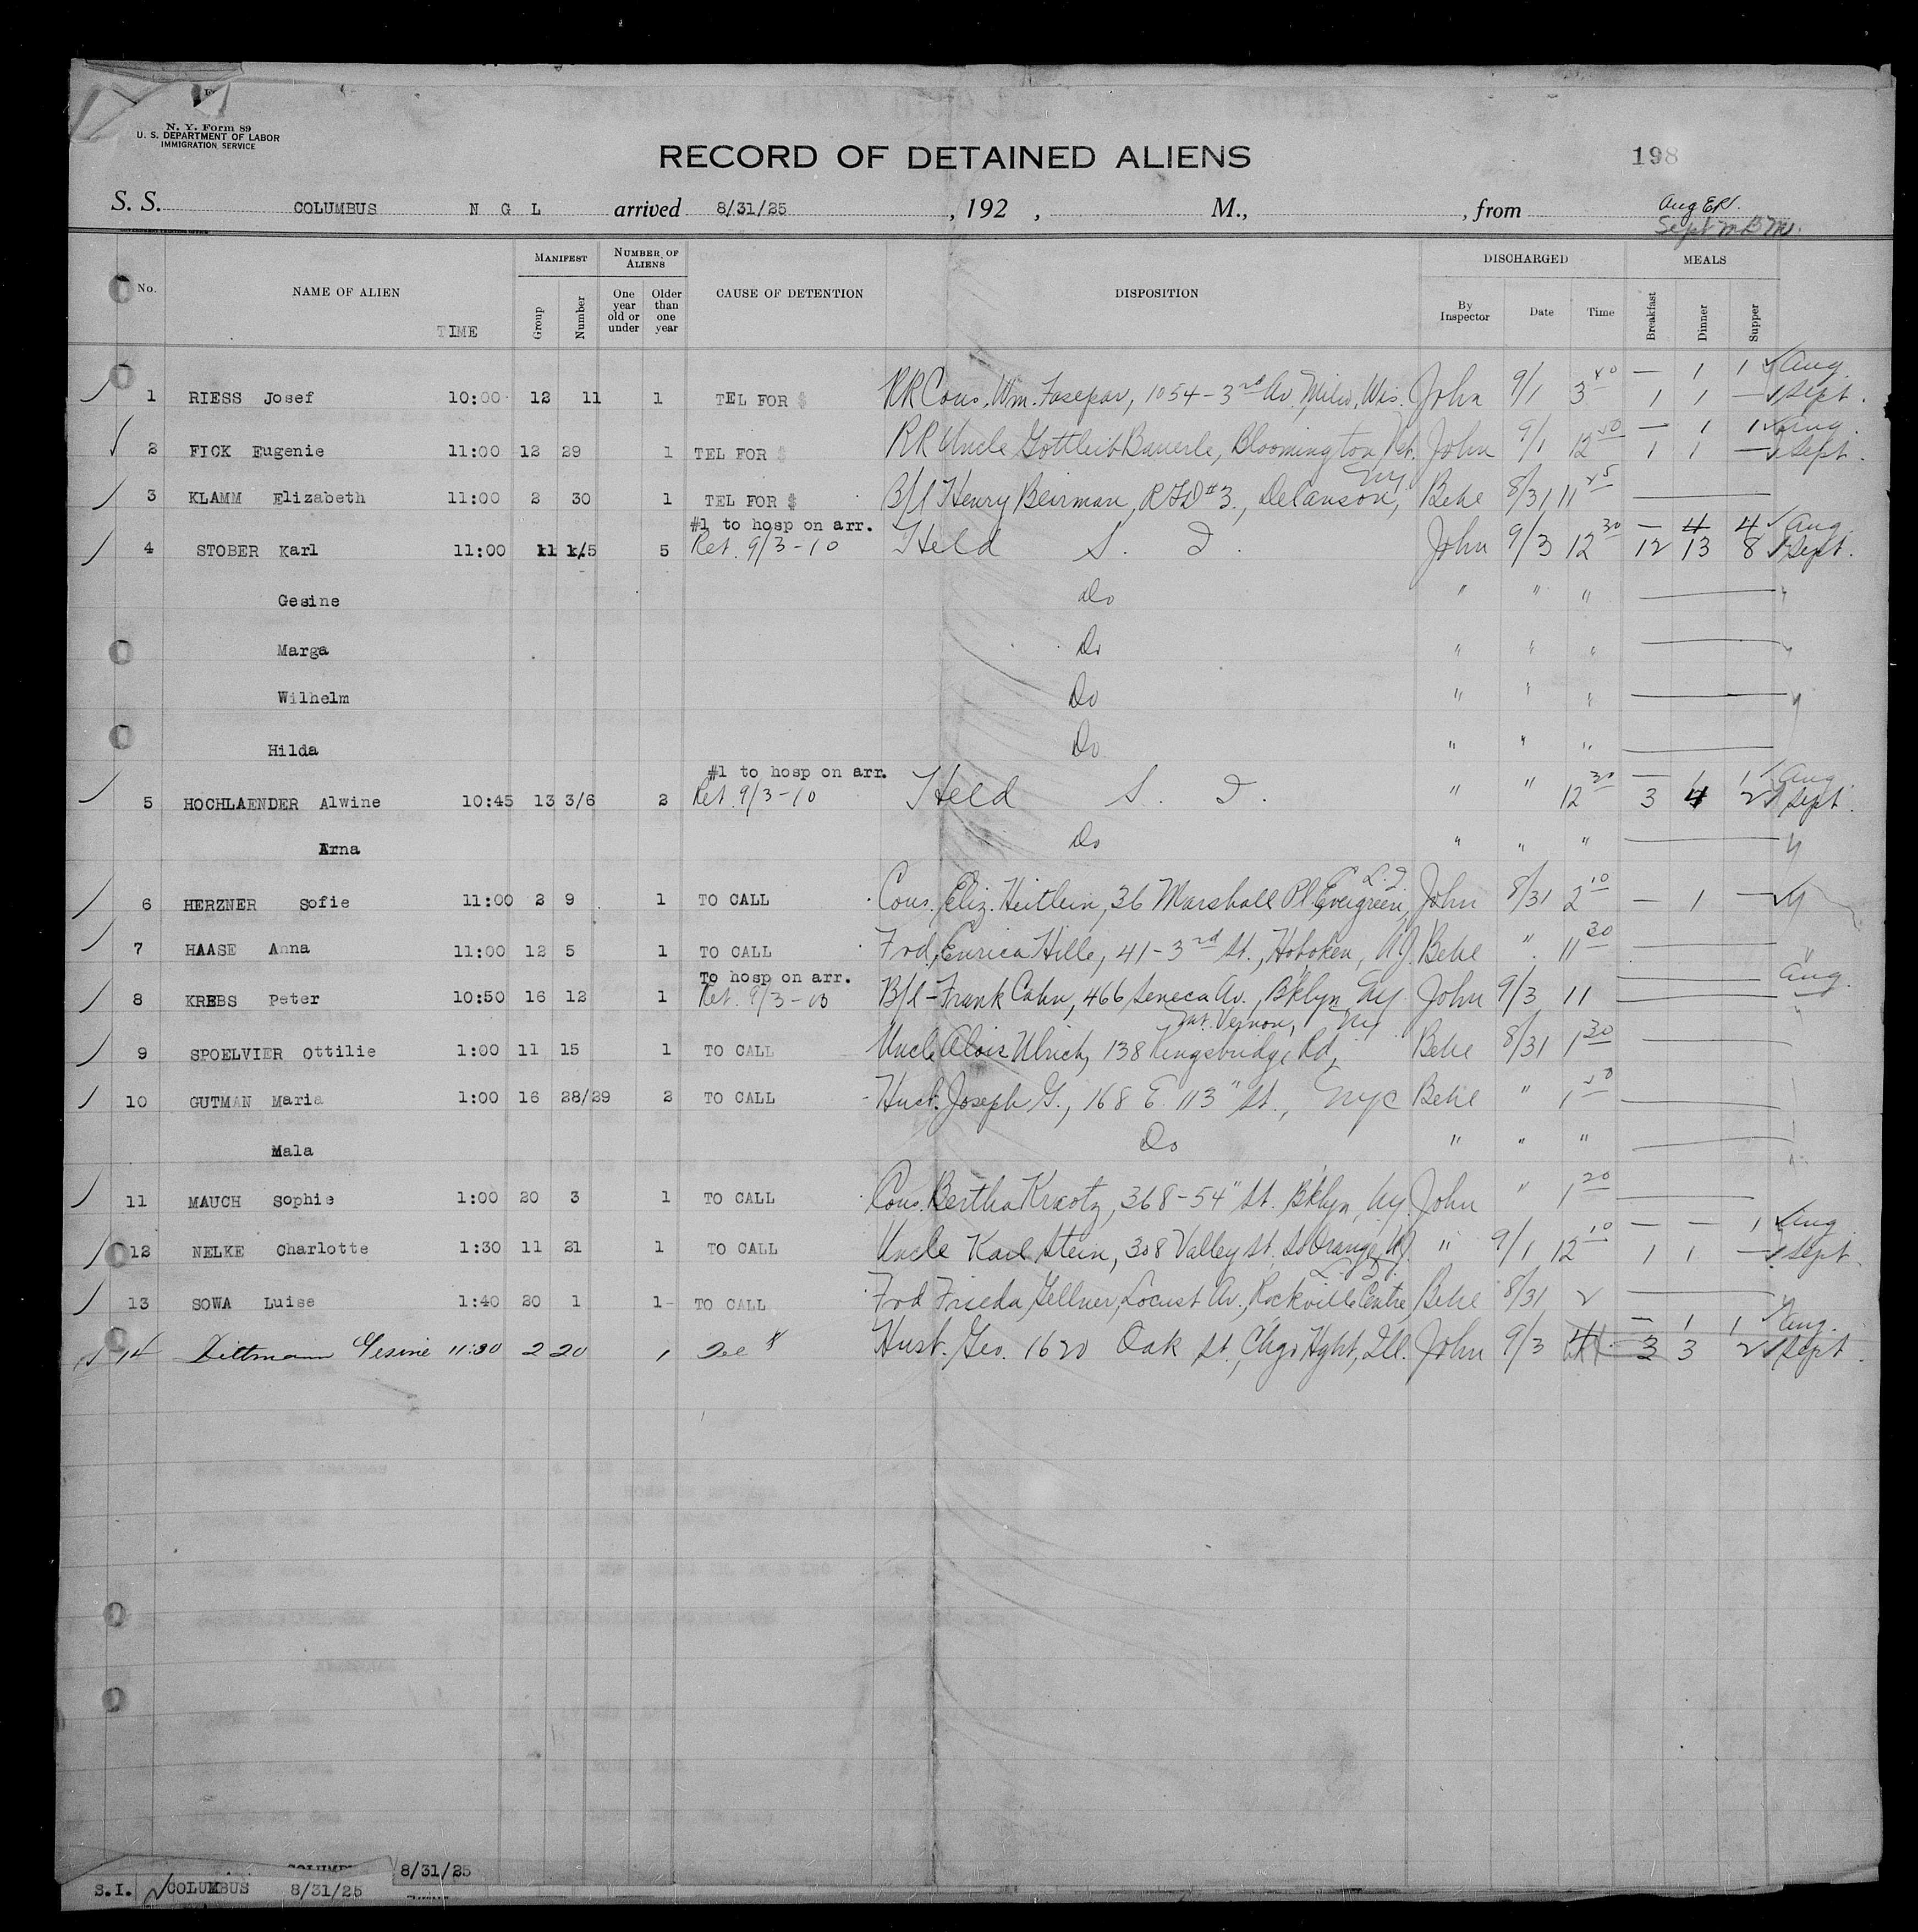 N. Y. Form 89
U. S. DEPARTMENT OF LABOR
IMMIGRATION SERVICE
RECORD OF DETAINED ALIENS 198
S. S. COLUMBUS N G L arrived 8/31/25, 192 , M., from Aug
Sept
No. NAME OF ALIEN TIME MANIFEST Group Number NUMBER OF ALIENS One year old or under Older than one year CAUSE OF DETENTION DISPOSITION DISCHARGED By Inspector Date Time MEALS Breakfast Dinner Supper
— 1 1 Aug.
1 RIESS Josef 10:00 12 11 1 TEL FOR $ RR Cous. Wm. 1054-3rd Av. Milw, Wis. John 9/1 3 40 1 1 — Sept.
— 1 1 Aug.
2 FICK Eugenie 11:00 12 29 1 TEL FOR $ RR Uncle Gottlieb Bauerle, Bloomington John 9/1 12 50 1 1 — Sept.
NY.
3 KLAMM Elizabeth 11:00 2 30 1 TEL FOR $ B/l Henry Beirman, RFD #3., Delanson, Behe 8/31 11 45 —
#1 to hosp on arr. — 4 4 Aug.
4 STOBER Karl 11:00 11 1/5 5 Ret. 9/3-10 Held S. I. John 9/3 12 30 12 13 8 Sept.
Gesine Do " " " —
Marga Do " " " —
Wilhelm Do " " " —
Hilda Do " " " —
#1 to hosp on arr. — 1 1 Aug
5 HOCHLAENDER Alwine 10:45 13 3/6 2 Ret. 9/3-10 Held S. I. " " 12 30 3 4 2 Sept.
Arna Do " " " — "
L.I.
6 HERZNER Sofie 11:00 2 9 1 TO CALL Cous. Eliz. Heitlein, 36 Marshall Pl. Evergreen, John 8/31 2 10 — 1 — "
7 HAASE Anna 11:00 12 5 1 TO CALL Frd. Enrica Hille, 41-3rd St., Hoboken, NJ. Behe " 11 30 — "
To hosp on arr. — Aug.
8 KREBS Peter 10:50 16 12 1 Ret. 9/3-10 B/l-Frank Cahn, 466 Seneca Av., Bklyn NY. John 9/3 11 — "
Mt. Vernon, NY
9 SPOELVIER Ottilie 1:00 11 15 1 TO CALL Uncle Alois Ulrich, 138 Kingsbridge Rd, Behe 8/31 1 30 —
10 GUTMAN Maria 1:00 16 28/29 2 TO CALL Husb. Joseph G., 168 E. 113" St., NYC Behe " 1 50 —
Mala Do " " " —
11 MAUCH Sophie 1:00 20 3 1 TO CALL Cous. Bertha 368-54" St. Bklyn, NY. John " 1 20 —
— — 1 Aug
12 NELKE Charlotte 1:30 11 21 1 TO CALL Uncle Karl Stein, 308 Valley St. So Orange, NJ. " 9/1 12 10 1 1 — Sept.
L.I.
13 SOWA Luise 1:40 20 1 1- TO CALL Frd Frieda Gellner, Locust Av., Rockville Centre, Behe 8/31 2 —
— 1 1 Aug.
14 Dittmann Gesine 11:30 2 20 1 Tel $ Husb. Geo. 1620 Oak St., Chgo Hght, Ill. John 9/3 3 3 2 Sept.
COLUMBUS 8/31/25
S.I. COLUMBUS 8/31/25